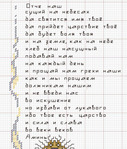 Отче наш
сущий на небесах
да святится имя твоё
да прийдет царствие твоё
да будет воля твоя
и на земле, как на небе
хлеб наш насущный
подавай нам
на каждый день
и прощай нам грехи наши
как и мы прощаем
должникам нашим
и не введи нас
во искушение
но избави от лукавого
ибо твоё есть царство
и сила и слава
во веки веков
Аминь